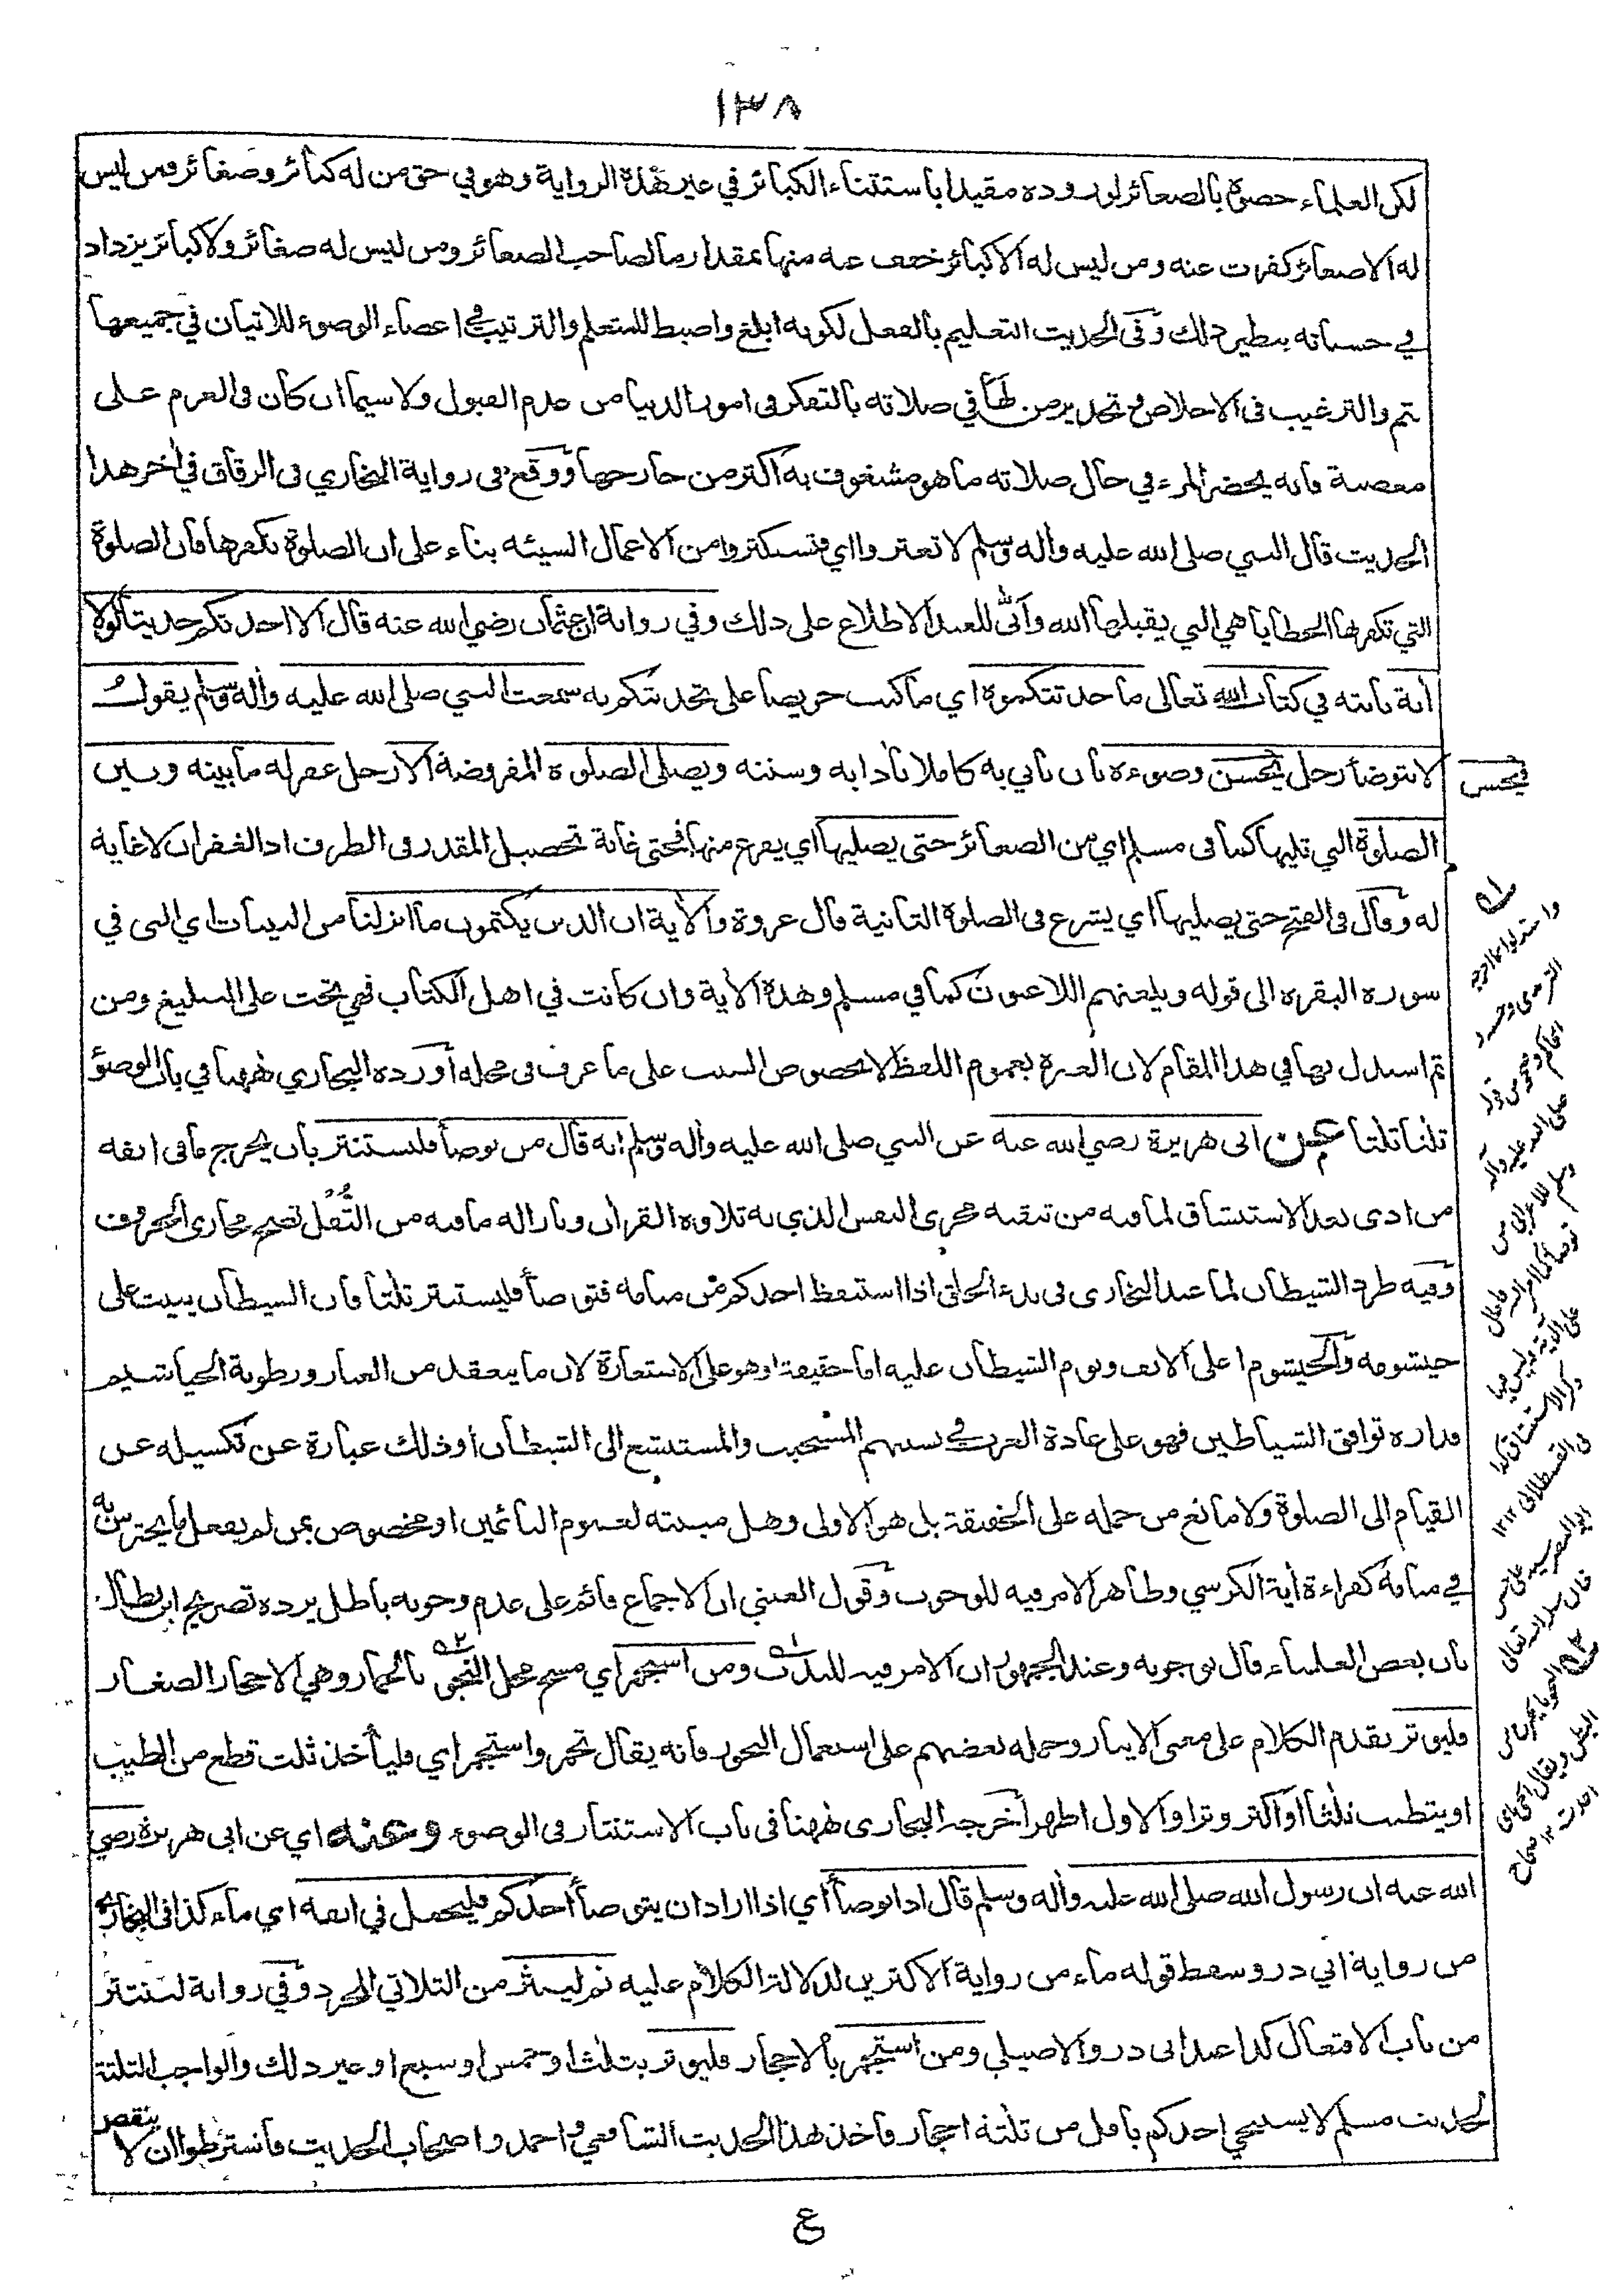 ١٣٨
لكن العلماء خصوه بالصغائر لوروده مقيدا باستثناء الكبائر في غير هذه الرواية وهو في حق من له كبائر وصغائر ومن ليس
له الا صغائر كفرت عنه ومن ليس له الا كبائر خفف عنه منها بمقدار ما لصاحب الصغائر ومن ليس له صغائر ولا كبائر يزداد
في حسناته بنظير ذلك وفي الحديث التعليم بالفعل لكونه ابلغ واضبط للمتعلم والترتيب في اعضاء الوضوء للاتيان في جميعها
بثم والترغيب في الاخلاص وتحذير من لها في صلاته بالتفكر في امور الدنيا من عدم القبول ولا سيما ان كان في العزم على
معصية فانه يحضر المرء في حال صلاته ما هو مشغوف به اكثر من خارجها ووقع في رواية البخاري في الرقاق في اخر هذا
الحديث قال النبي صلى الله عليه وآله وسلم لا تغتروا اي فتستكثروا من الاعمال السيئة بناء على ان الصلوة تكفرها فان الصلوة
التي تكفر بها الخطايا هي التي يقبلها الله وأنّى للعبد الاطلاع على ذلك وفي رواية ان عثمان رضي الله عنه قال الا احدثكم حديثا لولا
أية ثابتة في كتاب الله تعالى ما حدثتكموه اي ما كنت حريصا على تحديثكم به سمعت النبي صلى الله عليه وأله وسلم يقول
لا يتوضأ رجل يحسن وضوءه بان ياتي به كاملا بأدابه وسننه ويصلى الصلوة المفروضة الا رجل غفر له ما بينه وبين
فيحسن
الصلوة التي تليها كما في مسلم اي من الصغائر حتى يصليها اي يفرغ منها فحتى غاية تحصيل المقدر في الظرف اذ الغفران لا غاية
له وقال في الفتح حتى يصليها اي يشرع في الصلوة الثانية قال عروة والأية ان الذين يكتمون ما انزلنا من البينات اي التي في
سورة البقرة الى قوله ويلعنهم اللاعنون كما في مسلم وهذه الأية وان كانت في اهل الكتاب فهي تحث على التبليغ ومن
ثم استدل بها في هذا المقام لان العبرة بعموم اللفظ لا بخصوص السبب على ما عرف في محله أورده البخاري ههنا في باب الوضوء
ثلثا ثلثا عن ابي هريرة رضي الله عنه عن النبي صلى الله عليه وأله وسلم انه قال من توضأ فليستنثر بان يخرج ما في انفه
من اذى بعد الاستنشاق لما فيه من تنقية مجرى النفس الذي به تلاوة القران وبازالة ما فيه من الثفل تصح مجارى الحروف
وفيه طرد الشيطان لما عند البخاري في بدء الخلق اذا استيقظ احدكم من منامه فتوضأ فليستنثر ثلثا فان الشيطان يبيت على
خيشومه والخيشوم اعلى الانف ونوم الشيطان عليه اما حقيقة او هو على الاستعارة لان ما ينعقد من الغبار ورطوبة الخياشيم
قذارة توافق الشياطين فهو على عادة العرب في نسبتهم المستخبث والمستبشع الى الشيطان أو ذلك عبارة عن تكسيله عن
القيام الى الصلوة ولا مانع من حمله على الحقيقة بل هو الاولى وهل مبيته لعموم النائمين او مخصوص بمن لم يفعل ما يحترس به
في منامه كقراءة أية الكرسي وظاهر الامر فيه للوجوب وقول العيني ان الاجماع قائم على عدم وجوبه باطل يرده تصريح ابن بطال
بان بعض العلماء قال بوجوبه وعند الجمهور ان الامر فيه للندب ومن استجمر اي مسح محل النجو بالجمار وهي الاحجار الصغار
فليوتر تقدم الكلام على معنى الايتار وحمله بعضهم على استعمال البخور فانه يقال تجمر واستجمر اي فليأخذ ثلث قطع من الطيب
او يتطيب ثلثا أو اكثر وترا والاول اظهر أخرجه البخارى ههنا في باب الاستنثار في الوضوء وعنه اي عن ابي هريرة رضي
الله عنه ان رسول الله صلى الله عليه وأله وسلم قال اذا توضأ أي اذا اراد ان يتوضأ أحدكم فليجعل في انفه اي ماء كذا في البخاري
من رواية ابي ذر وسقط قوله ماء من رواية الاكثرين لدلالة الكلام عليه ثم لينثر من الثلاثي المجرد وفي رواية لينتثر
من باب الافتعال كذا عند ابي ذر والاصيلي ومن استجمر بالاحجار فليوتر بثلث او خمس او سبع او غير ذلك والواجب الثلثة
لحديث مسلم لا يستنجي احدكم باقل من ثلثة احجار فاخذ بهذا الحديث الشافعي واحمد واصحاب الحديث فاشترطوا ان لا ينقص
واستدلوا بما اخرجه
الترمذي وحسنه
الحاكم وصححه من قوله
صلى الله عليه وآله
وسلم للاعرابي
توضأ كما امرك الله فاحال
على الآية وليس فيها
ذكر الاستنشاق كذا
في القسطلاني ١٢
ع